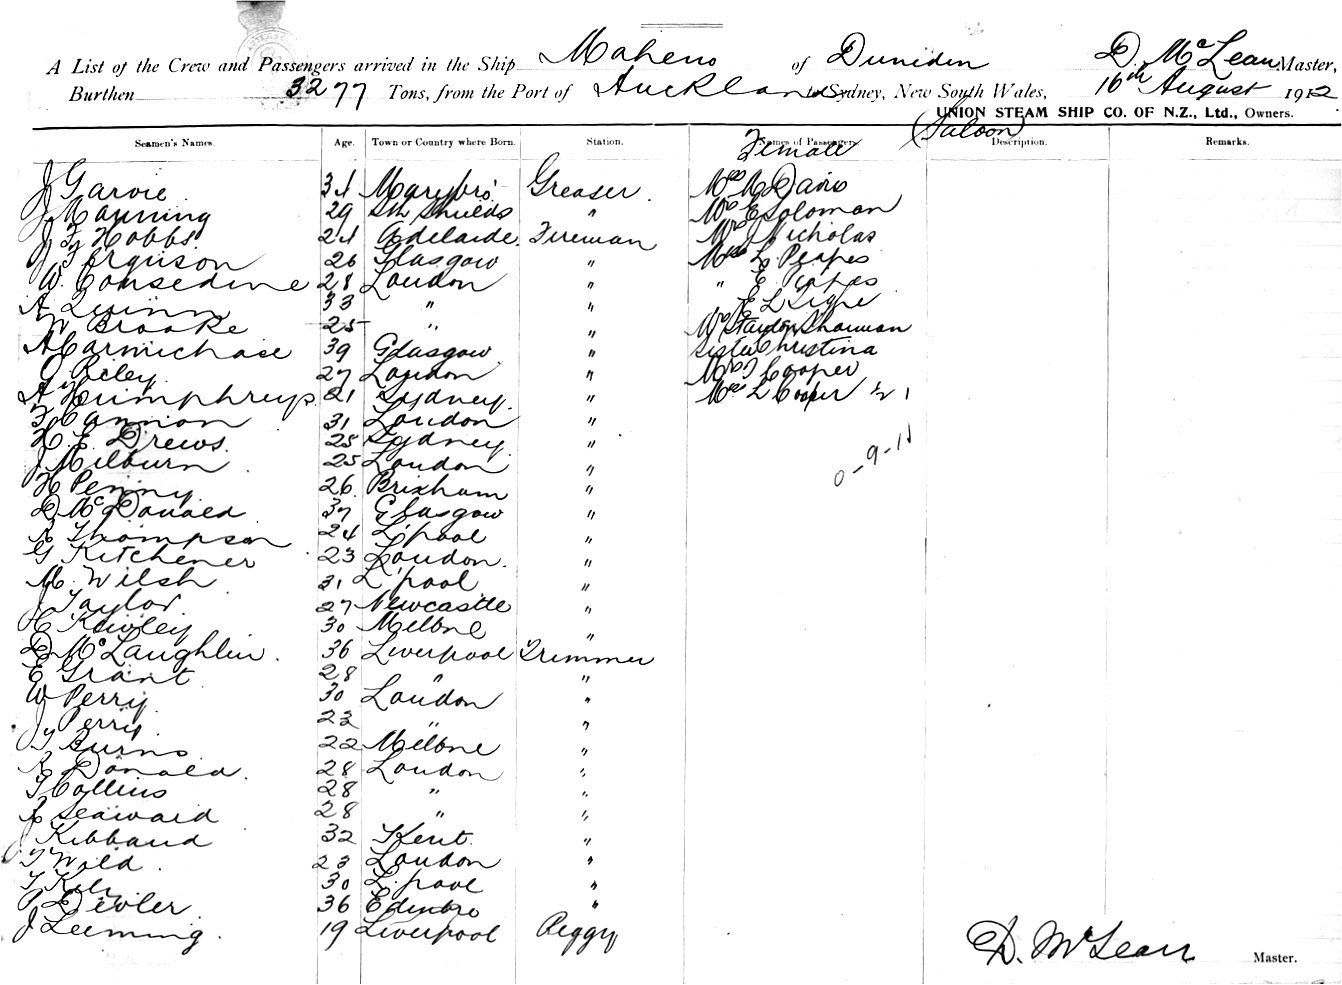 A List of the Crew and Passengers arrived in the Ship Maheno of Dunedin D. McLean Master,
Burthen 3277 Tons, from the Port of Auckland to Sydney, New South Wales, 16th August 1912
UNION STEAM SHIP CO. OF N.Z., Ltd., Owners.
Saloon
Seamen's Names. Age. Town or Country where Born. Station. Names of Passengers. Description. Remarks.
Female
J Garvie 34 Marybro' Greaser Mrs Davis
J Manning 29 Sth Shields " Mrs E Soloman
J F Hobbs 24 Adelaide Fireman Nicholas
J Ferguson 26 Glasgow " Miss L Peapes
W. Consedine 28 London " " E Peapes
A Quinn 33 " " E L Tighe
W Brooke 25 " " Mrs Staydon Sharman
A Carmichael 39 Glasgow " Sister Christina
Riley 27 London " Mrs Cooper
A Humphreys 21 Sydney " Miss L Cooper ½ 1
F Cannon 31 London "
H. E. Drews 25 Sydney "
J Milburn 25 London "
0-9-11
H Penny 26 Brixham "
D McDonald 37 Glasgow "
R Thompson 24 L'pool "
G Kitchener 23 London "
M. Wilsh 31 L'pool "
J Taylor 27 Newcastle "
H Kewley 30 Melbne "
D McLaughlin 36 Liverpool Trimmer
E Grant 28 " "
W Perry 30 London "
J Perry 22 " "
T Burns 22 Melbne "
R Donald 28 London "
T Collins 28 " "
R Seaward 28 " "
J Kibbaud 32 Kent "
T Wold 23 London "
T 30 L'pool "
P Dewler 36 Edinbro "
J Leeming 19 Liverpool Peggy
D. McLean Master.